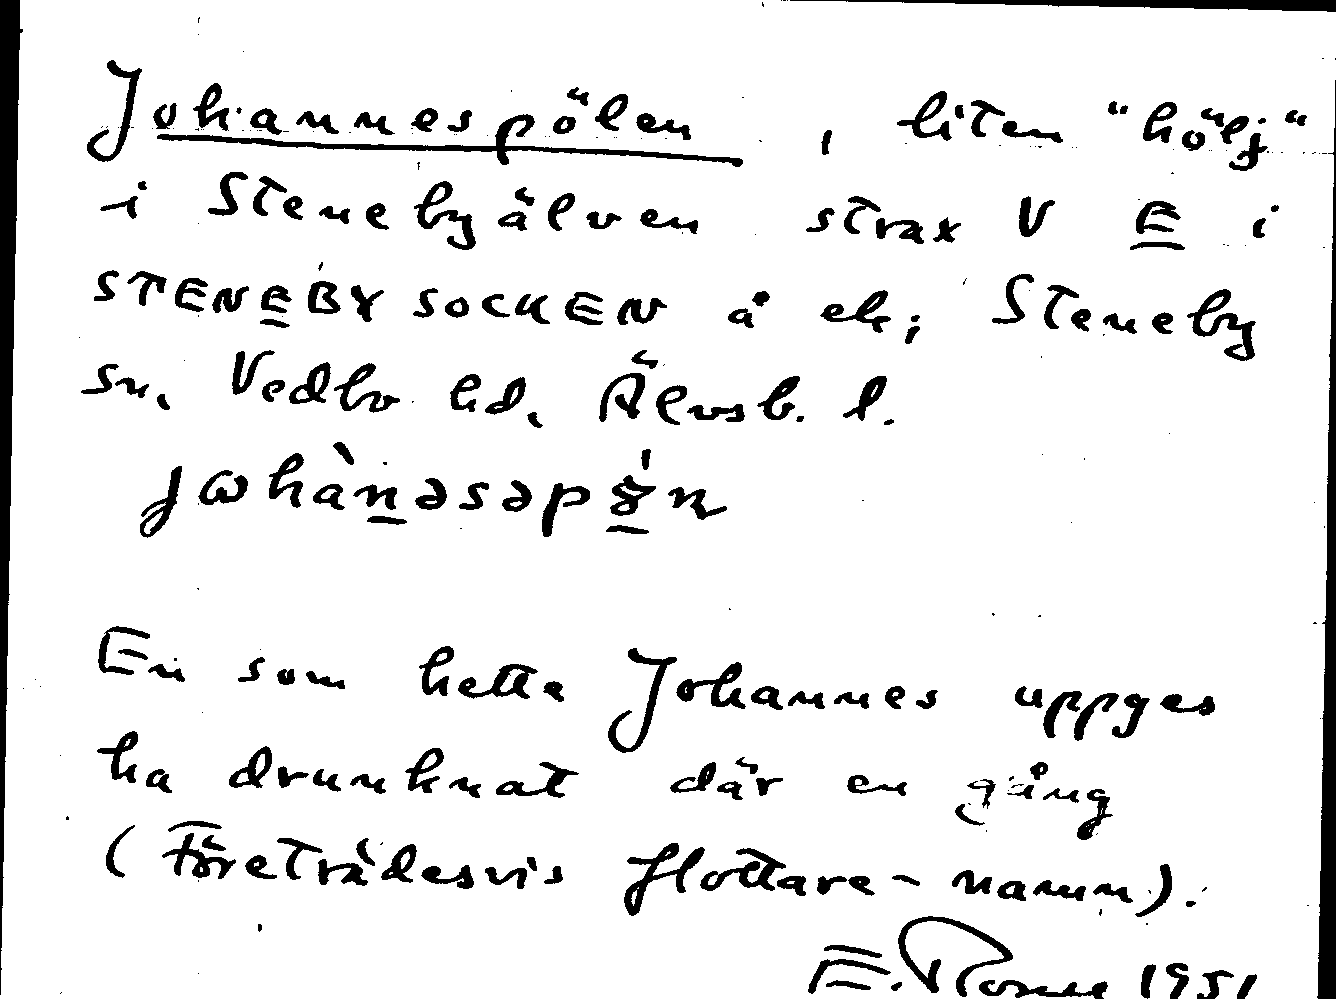 Johannespölen, liten "hölj"
i Stenebyälven strax V E i
STENEBY SOCKEN å ek; Steneby
sn. Vedbo hd. Älvsb. l.
En som hette Johannes uppges
ha drunknat där en gång
(Företrädesvis flottare-namn).
1951